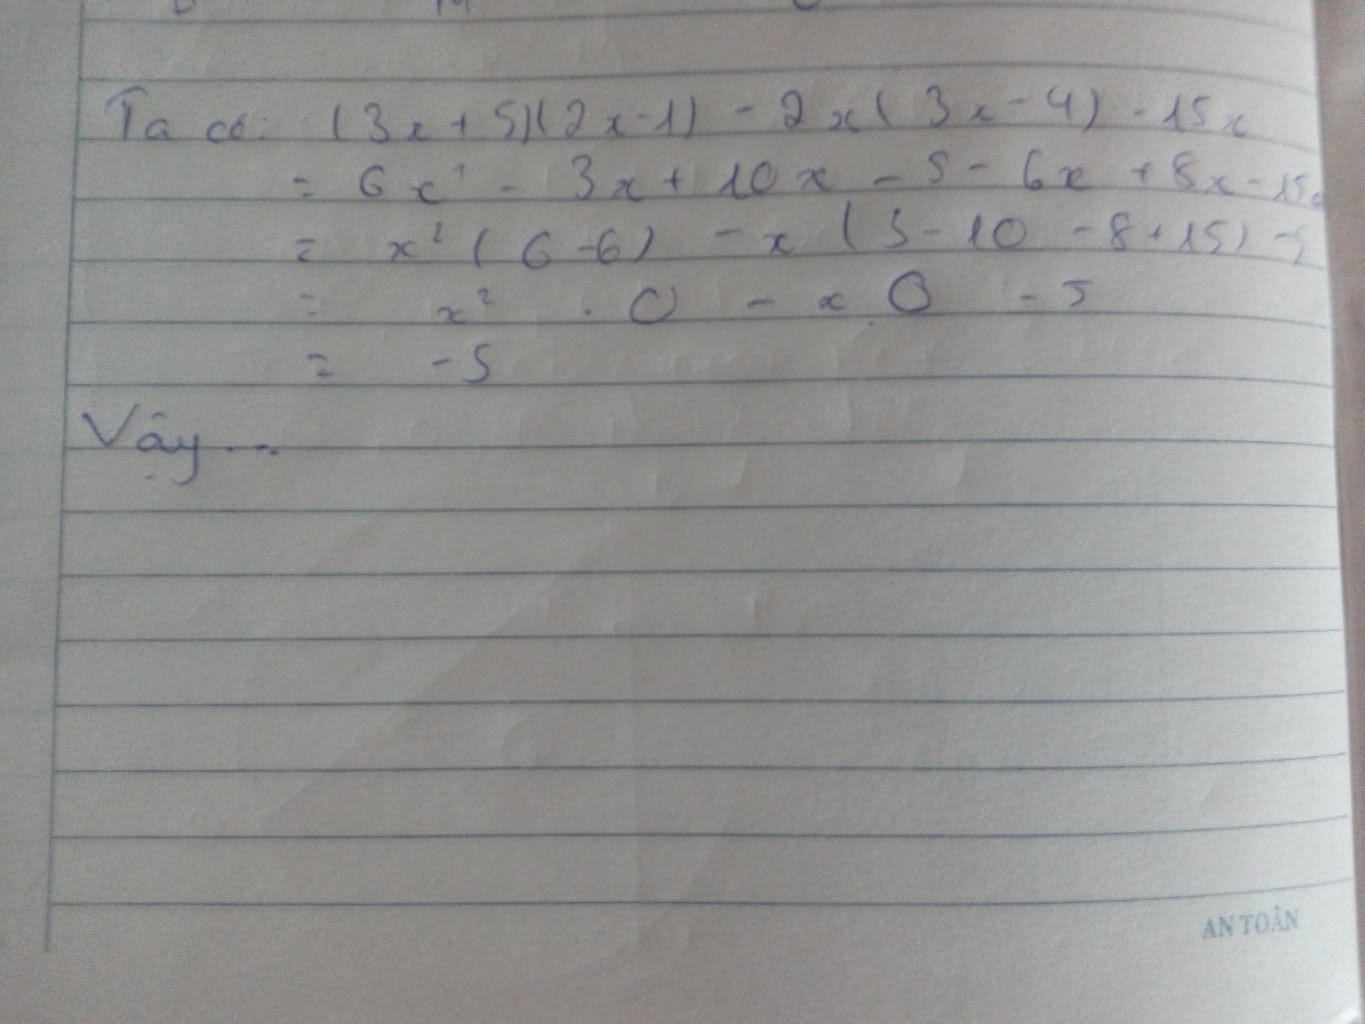 Ta có: (3x + 5)(2x - 1) - 2x(3x - 4) - 15x
= 6x² - 3x + 10x - 5 - 6x + 8x - 15x
= x² (6 - 6) - x (3 - 10 - 8 + 15) - 5
= x² . 0 - x . 0 - 5
= - 5
Vậy ...
AN TOÀN